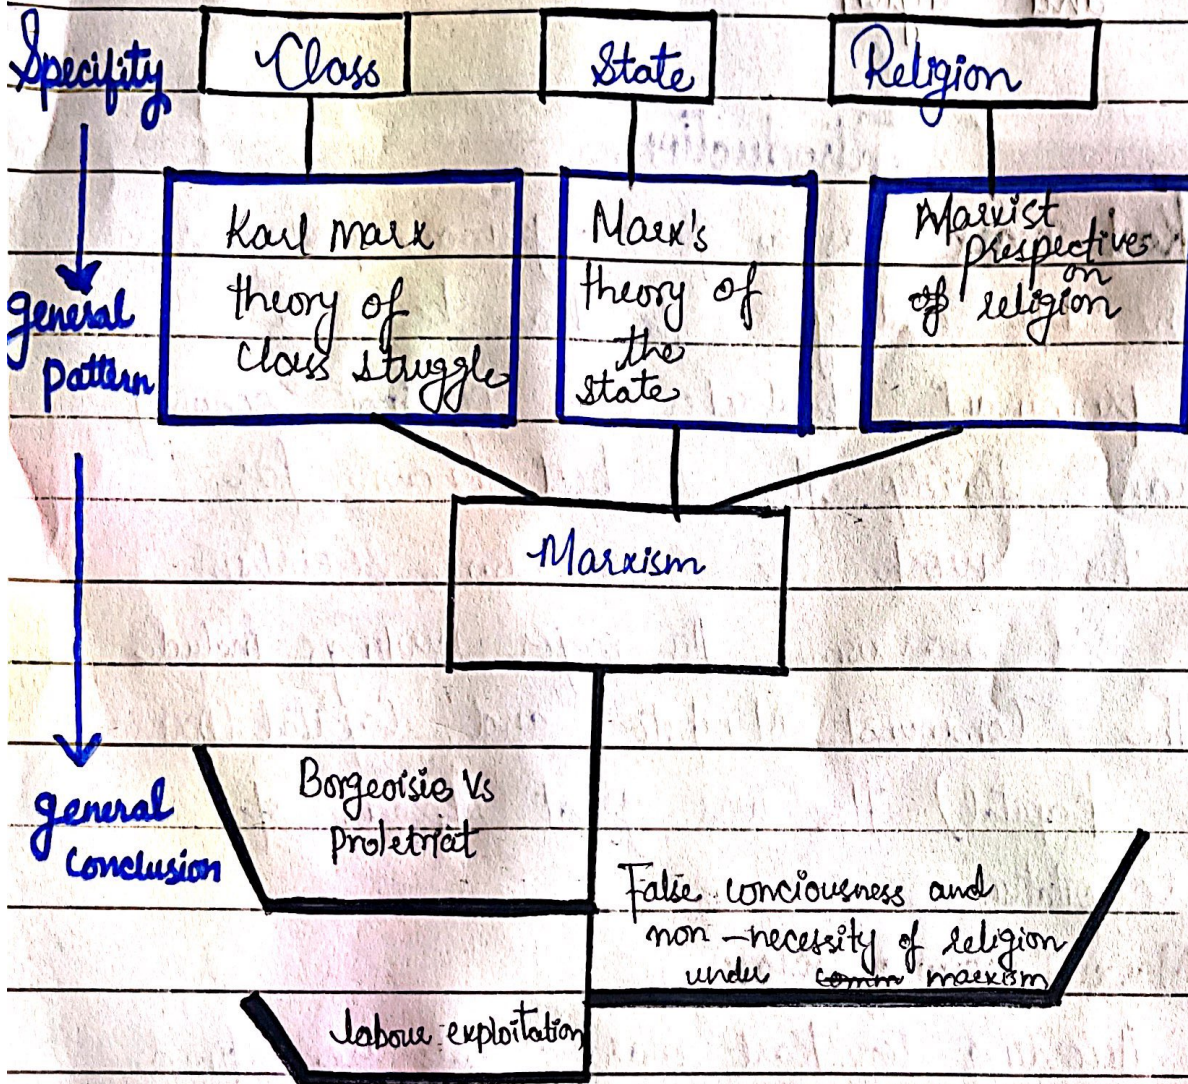 Specifity
Class
State
Religion
Karl marx
theory of
class struggle
Marx's
theory of
the
state
Marxist
prespective
on
of religion
general
pattern
Marxism
general
conclusion
Borgeoisie Vs
proletriat
False conciousness and
non-necessity of religion
under comm marxism
labour exploitation